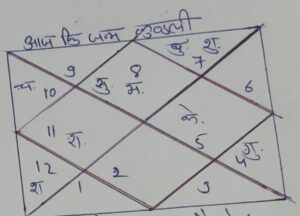 आज कि जन्म कुण्डली
बु. शु.
9 8 7
च. 10 सु. म. 6
11 रा. के. 5
12 श 1 2 3 4 गु.